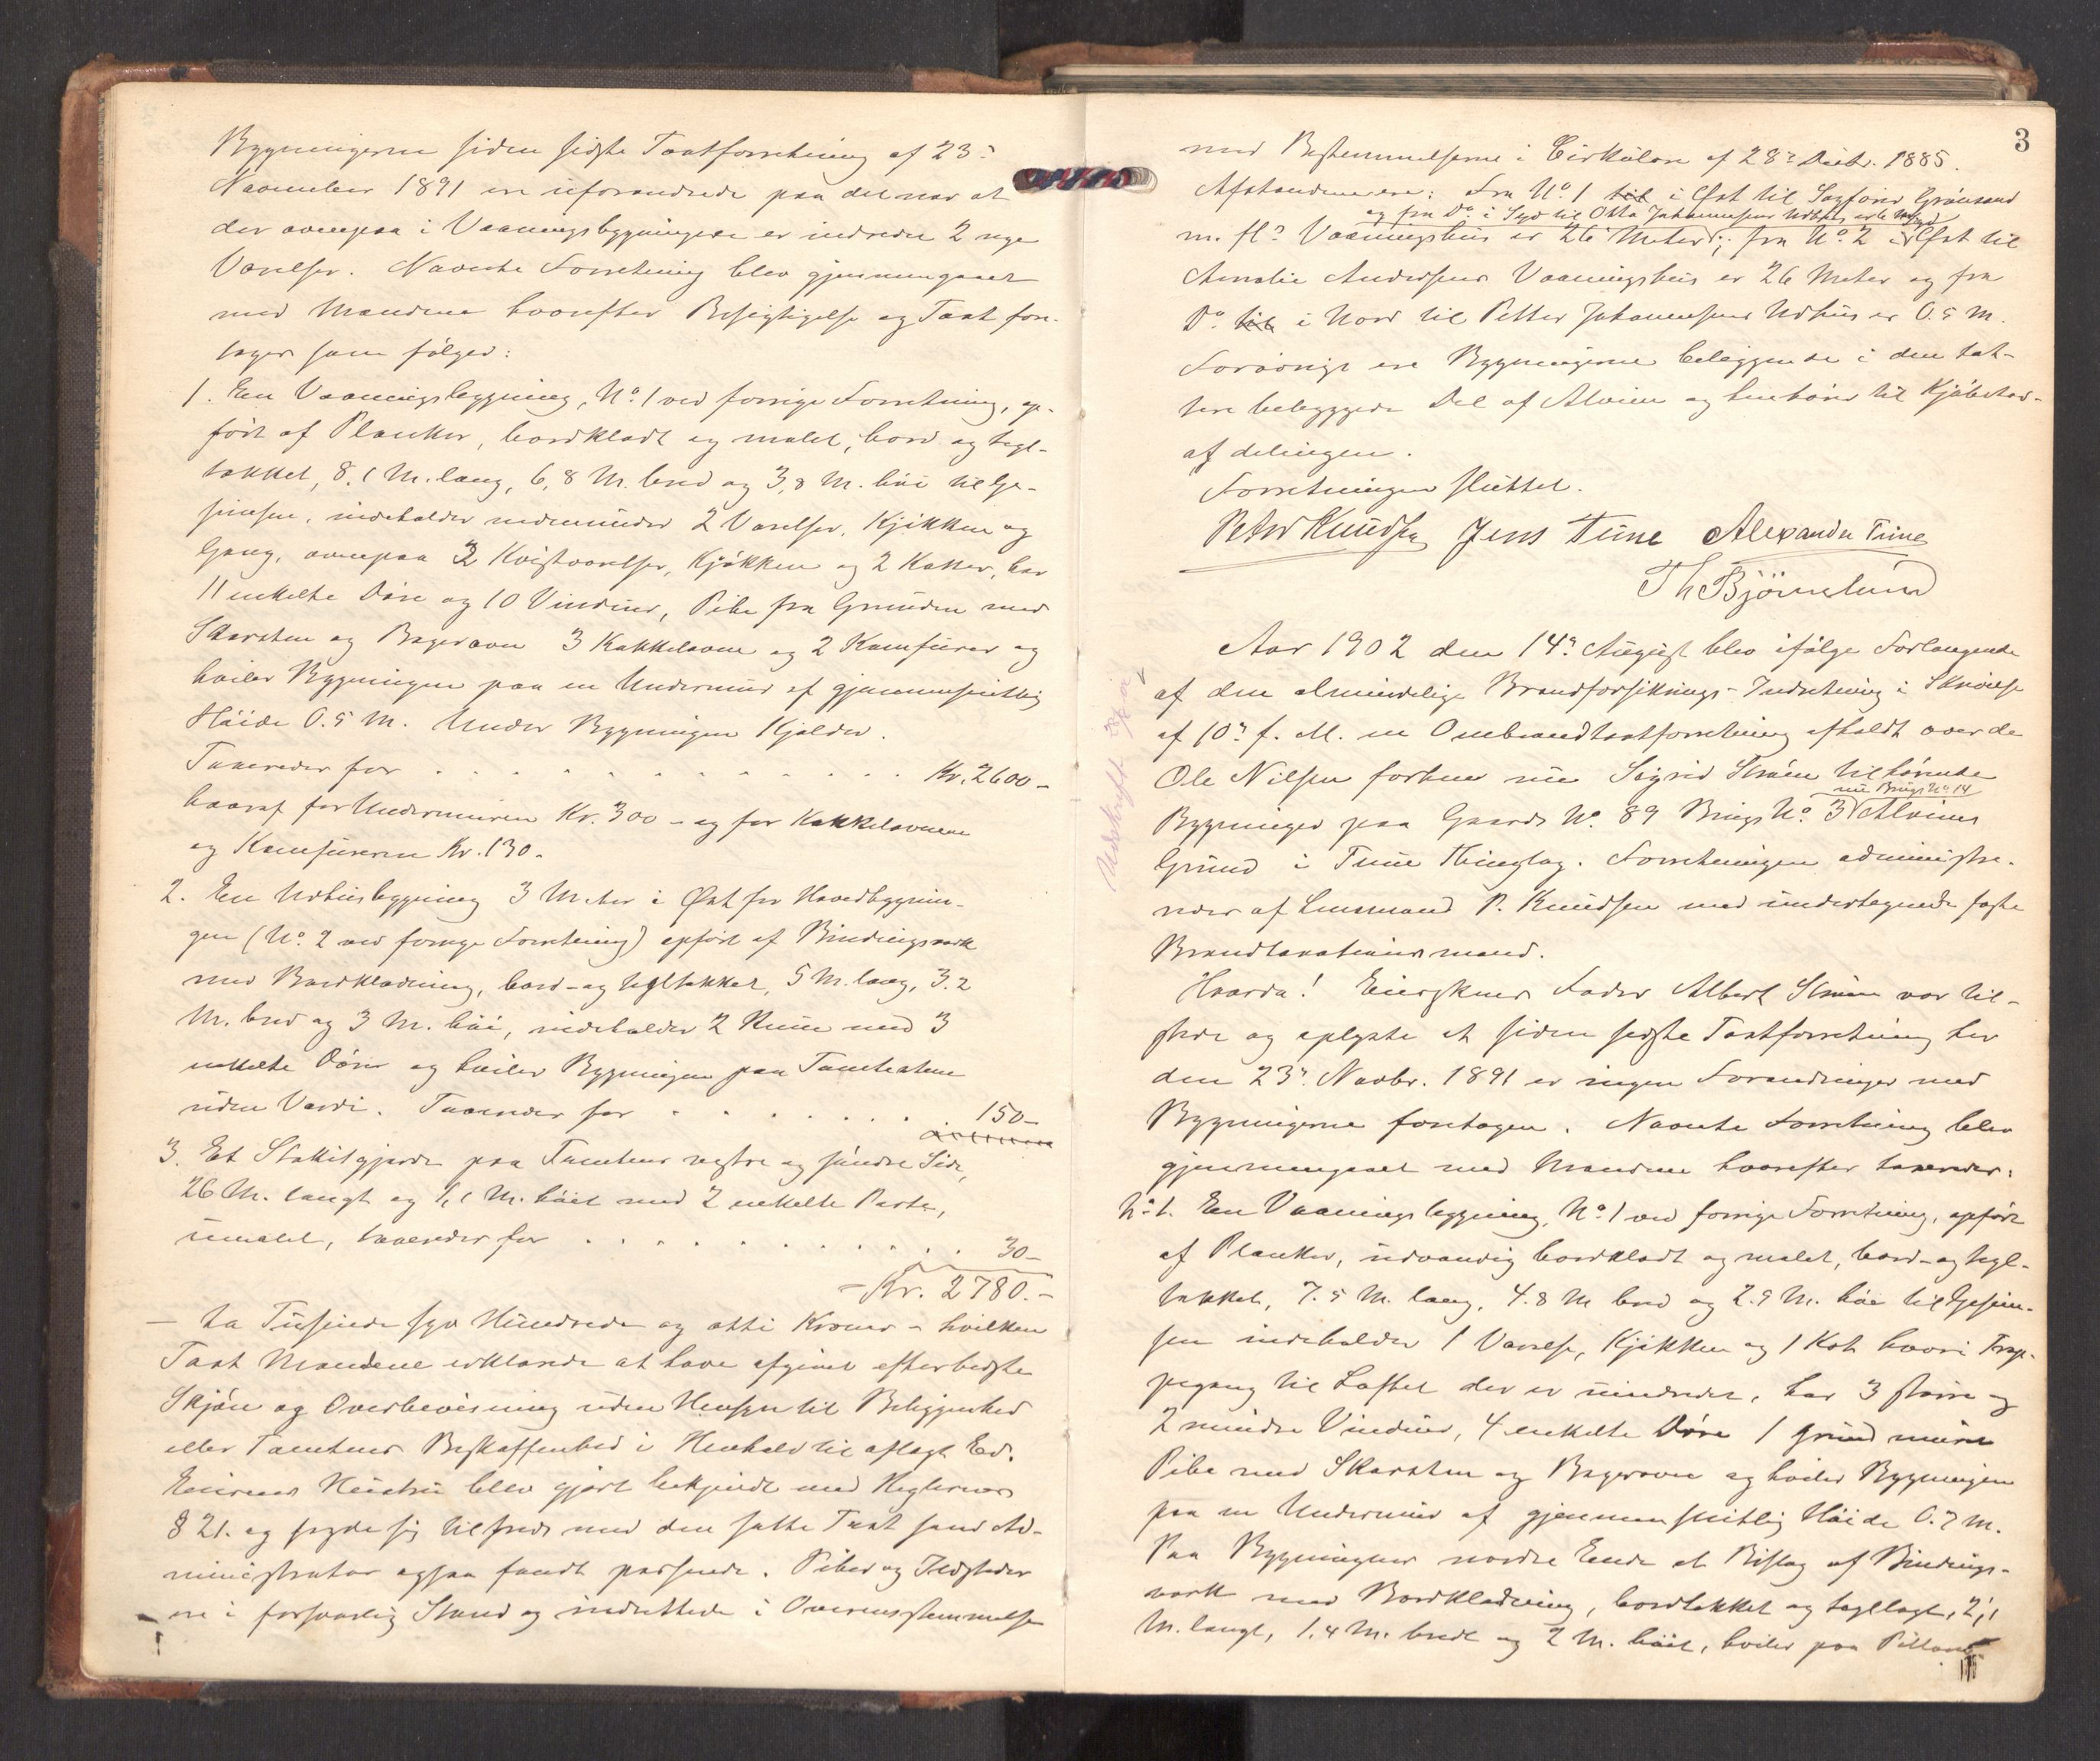 Bygningerne siden sidste Taxtforretning af 23de
November 1891 ere uforandrede paa det nær at
der ovenpaa i Vaaningsbygningen er indredet 2 nye
Værelser. Nævnte Forretning blev gjennemgaaet
med Mændene hvorefter Besigtigelse og Taxt fore-
toges som følger:
1. En Vaaningsbygning, No. 1 ved forrige Forretning, op-
ført af Planker, bordklædt og malet, bord og tegl-
tækket, 8.1 M. lang, 6,8 M. bred og 3,8 M. høi til Ge-
simsen, indeholder nedenunder 2 Værelser, Kjøkken og
Gang, ovenpaa 2 Kvistværelser, Kjøkken og 2 Kotter, har
11 enkelte Døre og 10 Vinduer, Pibe fra Grunden med
Skorsten og Bagerovn 3 Kakkelovne og 2 Komfurer og
hviler Bygningen paa en Undermur af gjennemsnitlig
Høide 0.5 M. Under Bygningen Kjælder.
Taxeredes for . . . . . . . . . . . . . Kr. 2600 -
hvoraf for Undermuren Kr. 300 - og for Kakkelovnene
og Komfurerne Kr. 130.
2. En Udhusbygning 3 Meter i Øst for Hovedbygnin-
gen (No. 2 ved forrige Forretning) opført af Bindingsværk
med Bordklædning, bord- og tegltækket, 5 M. lang, 3.2
M. bred og 3 M. høi, indeholder 2 Rum med 3
enkelte Døre og hviler Bygningen paa Tomtestene
uden Værdi. Taxeredes for . . . . . . . 150 -
3. Et Stakitgjerde paa Tomtens vestre og søndre Side,
26 M. langt og 1,1 M. høit med 2 enkelte Porte,
umalet, taxeredes for . . . . . . . . . . . 30 -
- Kr. 2780. -
- to Tusinde syv Hundrede og otti Kroner - hvilken
Taxt Mændene erklærede at have afgivet efter bedste
Skjøn og Overbevisning uden Hensyn til Beliggenhed
eller Tomtens Beskaffenhed i Henhold til aflagt Ed.
Eierens Hustru blev gjort bekjendt med Reglernes
§ 21. og sagde sig tilfreds med den satte Taxt som Ad-
ministrator ogsaa fandt passende. Piber og Ildsteder
ere i forsvarlig Stand og indrettede i Overensstemmelse
3
med Bestemmelserne i Cirkulære af 28de Decbr. 1885.
Afstandene ere: Fra No. 1 til i Øst til Sagfører Grønsand
og fra Do. i Syd til Otto Johannesens Udhus
m. fl.s Vaaningshus er 26 Meter; fra No. 2 i Øst til
Amalie Andersens Vaaningshus er 26 Meter og fra
Do. til i Nord til Petter Johannesens Udhus er 0.5 M.
Forøvrigt ere Bygningerne beliggende i den tæt-
tere bebyggede Del af Alvim og henhører til Kjøbstad-
afdelingen.
Forretningen sluttet.
Peter Knudsen Jens Tune Alexander Tune
Th Bjørnelund
Udskrift
Aar 1902 den 14de August blev ifølge Forlangende
af den almindelige Brandforsikrings-Indretning i Skrivelse
af 10de f. M. en Ombrandtaxtforretning afholdt over de
Ole Nilsen forhen nu Sigrid Strøm tilhørende
nu Brugs No. 14
Bygninger paa Gaards No. 89 Brugs No. 3 Alvims
Grund i Tune Thinglag. Forretningen administre-
redes af Lensmand P. Knudsen med undertegnede faste
Brandtaxationsmænd.
Hvorda! Eierskens Fader Albert Strøm var til-
stede og oplyste at siden sidste Taxtforretning her
den 23de Novbr. 1891 er ingen Forandringer med
Bygningerne foretagen. Nævnte Forretning blev
gjennemgaaet med Mændene hvorefter taxeredes:
No. 1. En Vaaningsbygning, No. 1 ved forrige Forretning, opført
af Planker, udvendig bordklædt og malet, bord- og tegl-
tækket, 7.5 M. lang, 4.8 M bred og 2.9 M. høi til Gesim-
sen indeholder 1 Værelse, Kjøkken og 1 Kot hvori Trap-
pegang til Loftet der er uindredet, har 3 større og
2 mindre Vinduer, 4 enkelte Døre 1 grundmuret
Pibe med Skorsten og Bagerovn og hviler Bygningen
paa en Undermur af gjennemsnitlig Høide 0.7 M.
Paa Bygningens nordre Ende et Bislag af Bindings-
værk med Bordklædning, bordtækket og tegllagt, 2,1
M. langt, 1.4 M. bredt og 2 M. høit, hviler paa Pillarer